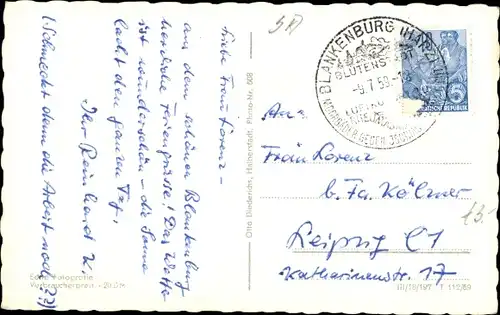 Liebe Frau Lorenz –
aus dem schönen Blankenburg
herzliche Feriengrüsse! Das Wetter
ist wunderschön – die Sonne
lacht den ganzen Tag.
Ihr Reinhard K.
(Schmeckt denn die Arbeit noch??)
Echte Fotografie
Verbraucherpreis -,20 DM
Otto Diederichs, Halberstadt, Photo-Nr. 608
BLANKENBURG (HARZ)
BLÜTENST
-9.7.59.-1
An
Frau Lorenz
b. Fa. Kölner
Leipzig C1
Katharinenstr. 17
III/18/197 T 112/59
5